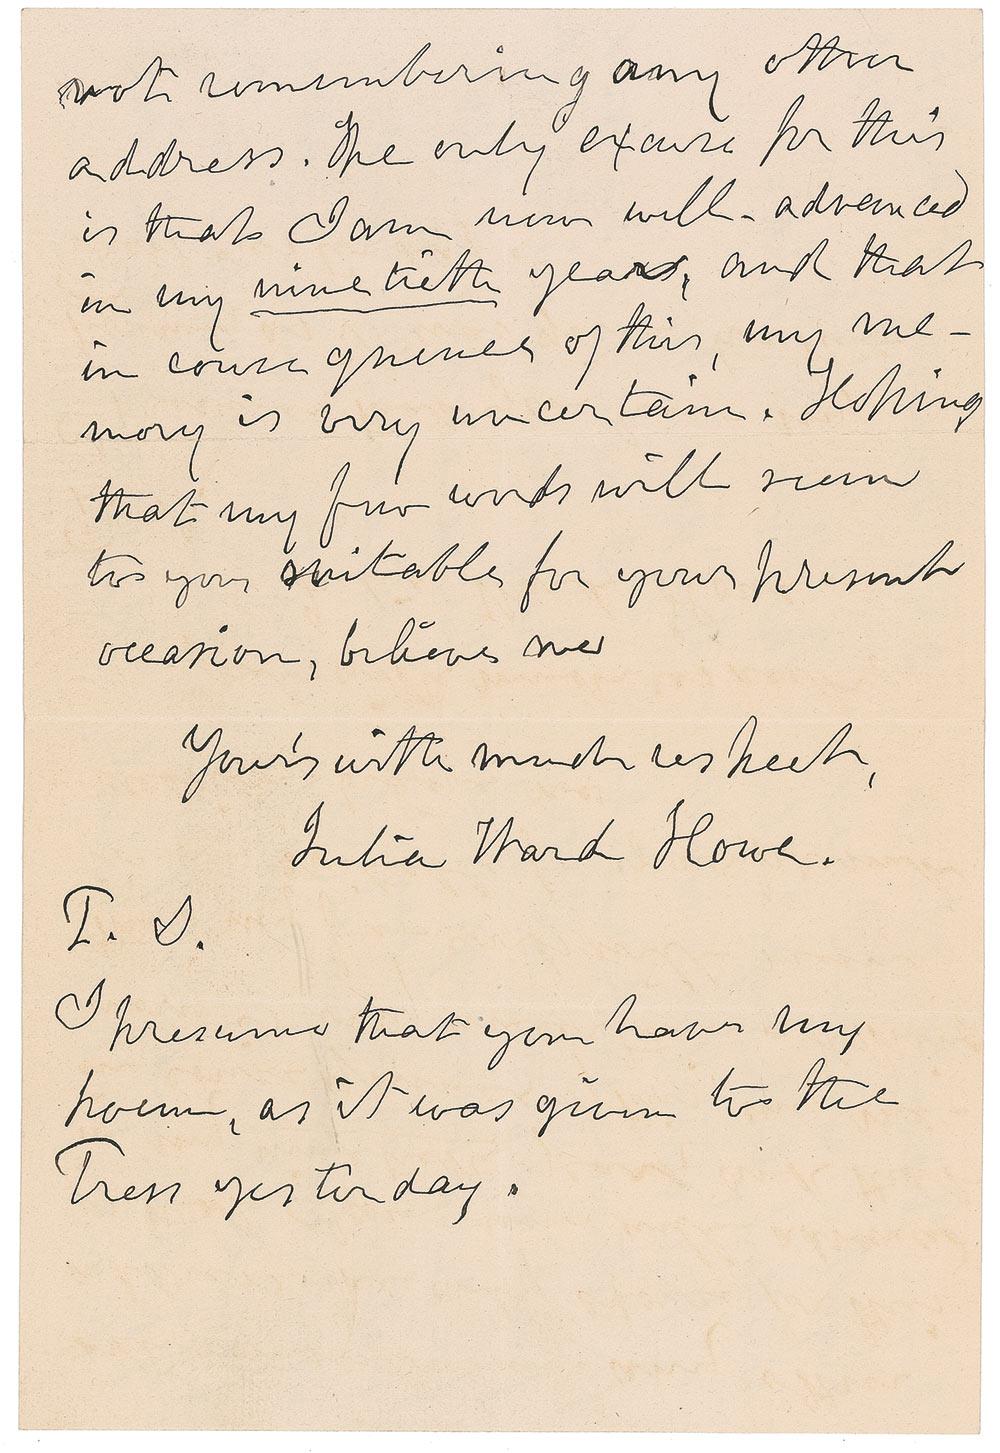 not remembering any other
address. The only excuse for this
is that I am now well-advanced
in my ninetieth year, and that
in consequence of this, my me-
mory is very uncertain. Hoping
that my few words will seem
to you suitable for your present
occasion, believe me
Your's with much respect,
Julia Ward Howe.
P. S.
I presume that you have my
poem, as it was given to the
Press yesterday.